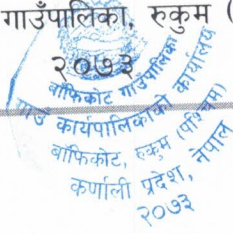 गाउँपालिका, रुकुम (
२०७३
बाँफिकोट गाउँपालिका
गाउँ कार्यपालिकाको कार्यालय
बाँफिकोट, रुकुम (पश्चिम)
कर्णाली प्रदेश, नेपाल
२०७३